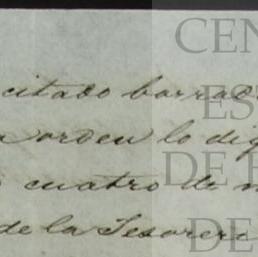 citado borrado
orden lo dig
cuatro de
de la Tesorer
CEN
ES
DE
DE